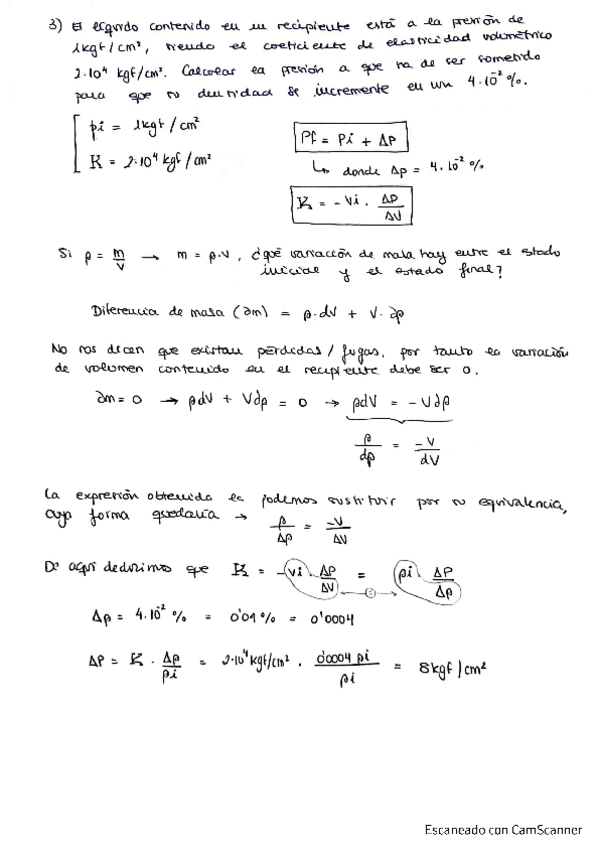 3) El líquido contenido en un recipiente está a la presión de
1kgf/cm², siendo el coeficiente de elasticidad volumétrico
2·10⁴ kgf/cm². Calcular la presión a que ha de ser sometido
para que su densidad se incremente en un 4·10⁻² %.
pi = 1kgf/cm²
K = 2·10⁴ kgf/cm²
Pf = Pi + ΔP
↳ donde Δρ = 4·10⁻² %
K = - Vi · ΔP/ΔV
Si ρ = m/V → m = ρ·V, ¿qué variación de masa hay entre el estado
inicial y el estado final?
Diferencia de masa (∂m) = ρ·dV + V·∂ρ
No nos dicen que existan pérdidas/fugas, por tanto la variación
de volumen contenido en el recipiente debe ser 0.
∂m = 0 → ρdV + V∂ρ = 0 → ρdV = - V∂ρ
ρ/dρ = -V/dV
La expresión obtenida la podemos sustituir por su equivalencia,
cuya forma quedaría → ρ/Δρ = -V/ΔV
De aquí deducimos que K = -Vi · ΔP/ΔV = ρi · ΔP/Δρ
Δρ = 4·10⁻² % = 0'04% = 0'0004
ΔP = K · Δρ/ρi = 2·10⁴ kgf/cm² · 0'0004 ρi/ρi = 8kgf/cm²
Escaneado con CamScanner